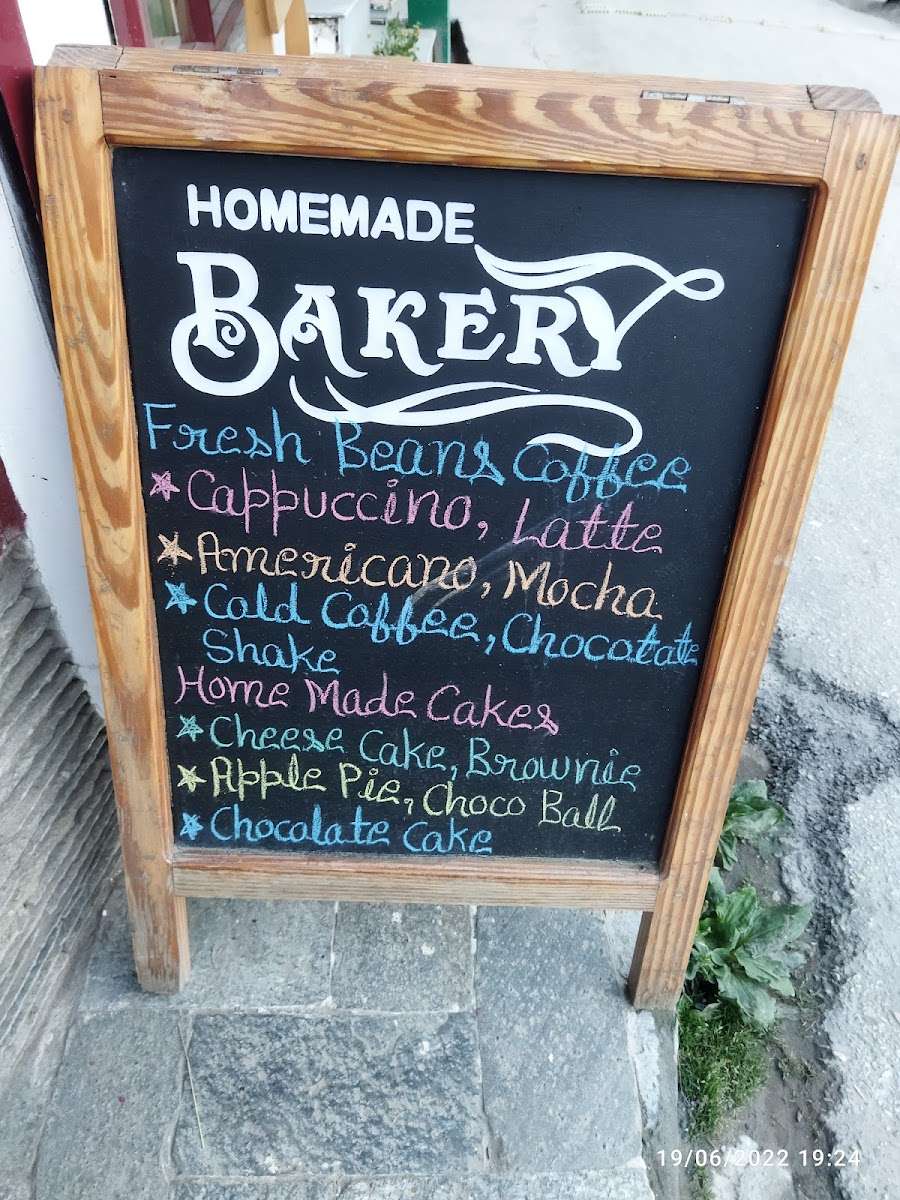 HOMEMADE
BAKERY
Fresh Beans Coffee
Cappuccino, Latte
Americano, Mocha
Cold Coffee, Chocotate
Shake
Home Made Cakes
Cheese Cake, Brownie
Apple Pie, Choco Ball
Chocolate Cake
19/06/2022 19:24